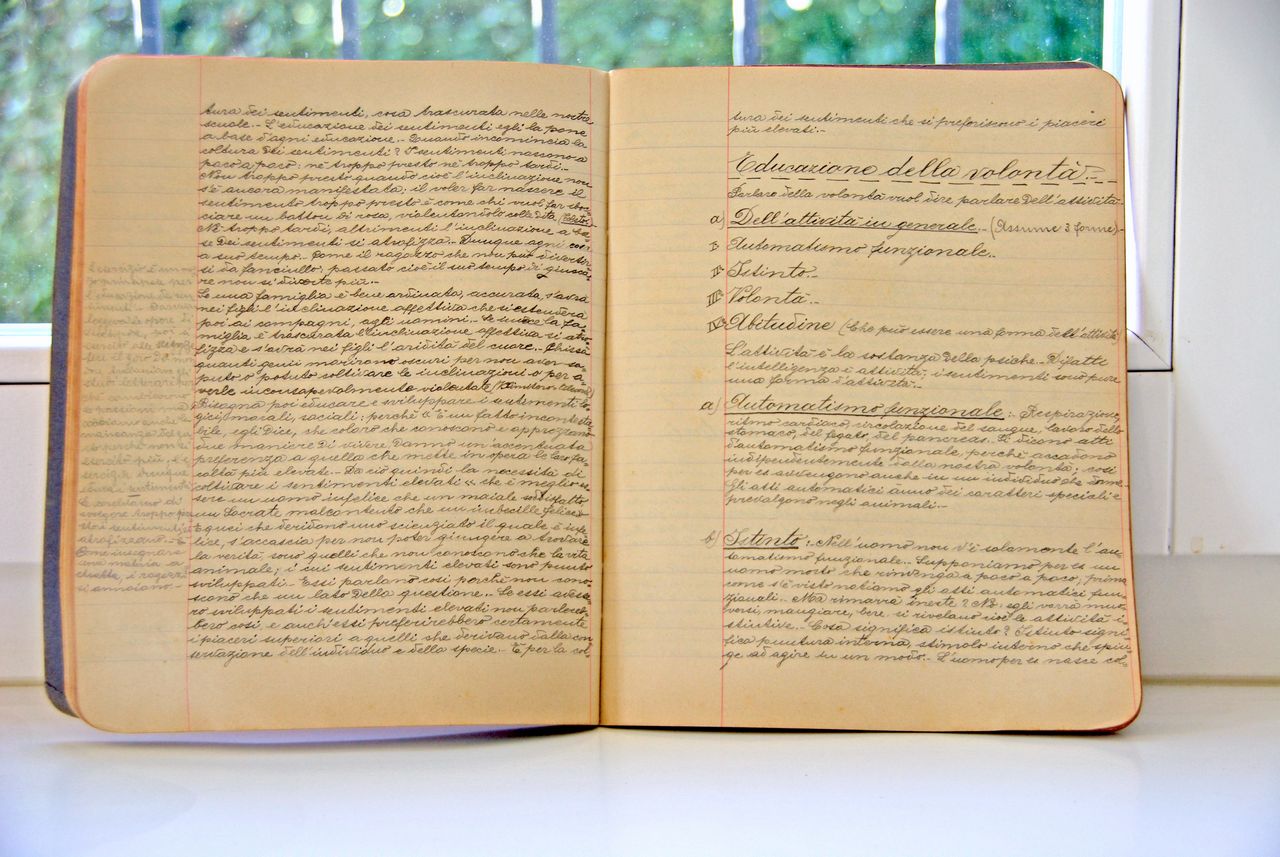 tura dei sentimenti, cosa trascurata nelle nostre
scuole.- L'educazione dei sentimenti egli la pone
a base d'ogni educazione.- Quando incomincia la
coltura dei sentimenti? I sentimenti nascono a
poco a poco: nè troppo presto nè troppo tardi.-
Non troppo presto quando cioè l'inclinazione non
s'è ancora manifestata; il voler far nascere il
sentimento troppo presto è come chi vuol far sboc-
ciare un bottou di rosa, violentandolo colle dita
Nè troppo tardi, altrimenti l'inclinazione a ba-
se dei sentimenti si atrofizza.- Dunque ogni cosa
a suo tempo.- Come il ragazzo che non può divertir-
si da fanciullo, passato cioè il suo tempo di giuoca-
re non si diverte più.-
Se una famiglia è bene ordinata, accurata, s'avrà
nei figli l'inclinazione affettiva che si estenderà
poi ai compagni, agli uomini.- Se invece la fa-
miglia è trascurata l'inclinazione affettiva si atro-
fizza e s'avrà nei figli l'aridità del cuore.- Chissà
quanti genii morirono oscuri per non aver sa-
puto o potuto coltivare le inclinazioni o per a-
verle inconsapevolmente violentate
Bisogna poi educare e sviluppare i sentimenti lo-
gici, morali, sociali: perchè "È un fatto incontesta-
bile, egli dice, che coloro che conoscono e apprezzano
due maniere di vivere, danno un'accentuata
preferenza a quella che mette in opera le loro fa-
coltà più elevate.- Da ciò quindi la necessità di
coltivare i sentimenti elevati " che è meglio es-
sere un uomo infelice che un maiale sodisfatto
un Socrate malcontento che un imbecille felice."
E quei che deridono uno scienziato il quale è infe-
lice, s'accascia per non poter giungere a trovare
la verità, sono quelli che non conoscono che la vita
animale; i cui sentimenti elevati sono punto
sviluppati.- Essi parlano così perchè non cono-
scono che un lato della questione.- Se essi avesse-
ro sviluppati i sentimenti elevati non parlereb-
bero così, e anch'essi preferirebbero certamente
i piaceri superiori a quelli che derivano dalla con-
servazione dell'individuo e della specie.- È per la col-
tura dei sentimenti che si preferiscono i piaceri
più elevati.-
Educazione della volontà.-
Parlare della volontà vuol dire parlare dell'attività
a) Dell'attività in generale.- (Assume 3 forme)-
I- Automatismo funzionale.-
II- Istinto.-
III- Volontà.-
IV- Abitudine (Che può essere una forma dell'attività)
L'attività è la sostanza della psiche.- Difatti
l'intelligenza è attività; i sentimenti sono pure
una forma d'attività.-
a) Automatismo funzionale:- Respirazione,
ritmo cardiaco, circolazione del sangue, lavoro dello
stomaco, del fegato, del pancreas. Si dicono atti
d'automatismo funzionale, perchè accadono
indipendentemente dalla nostra volontà; così
per es avvengono anche in un individuo che dorme.-
Gli atti automatici anno dei caratteri speciali e
prevalgono negli animali.-
b) Istinto:- Nell'uomo non v'è solamente l'au-
tomatismo funzionale.- Supponiamo per es un
uomo morto che rinvenga a poco a poco; prima
come s'è visto notiamo gli atti automatici fun-
zionali.- Ma rimarrà inerte? No: egli vorrà muo-
versi, mangiare, bere. si rivelano cioè le attività i-
stintive.- Cosa significa istinto? Istinto signi-
fica puntura interna, stimolo interno che spin-
ge ad agire in un modo.- L'uomo per es nasce col-